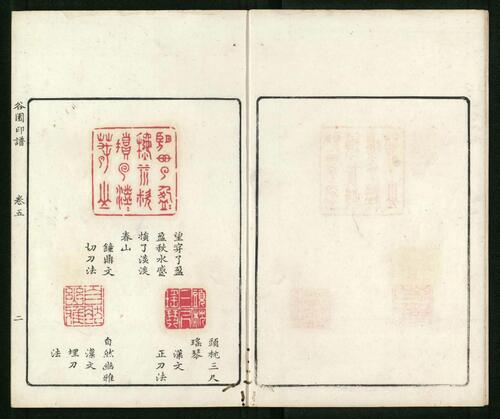 望穿了盈
盈秋水蹙
損了淡淡
春山
鐘鼎文
切刀法
頭枕三尺
瑤琴
漢文
正刀法
自然幽雅
漢文
埋刀
法
谷園印譜
卷五
二